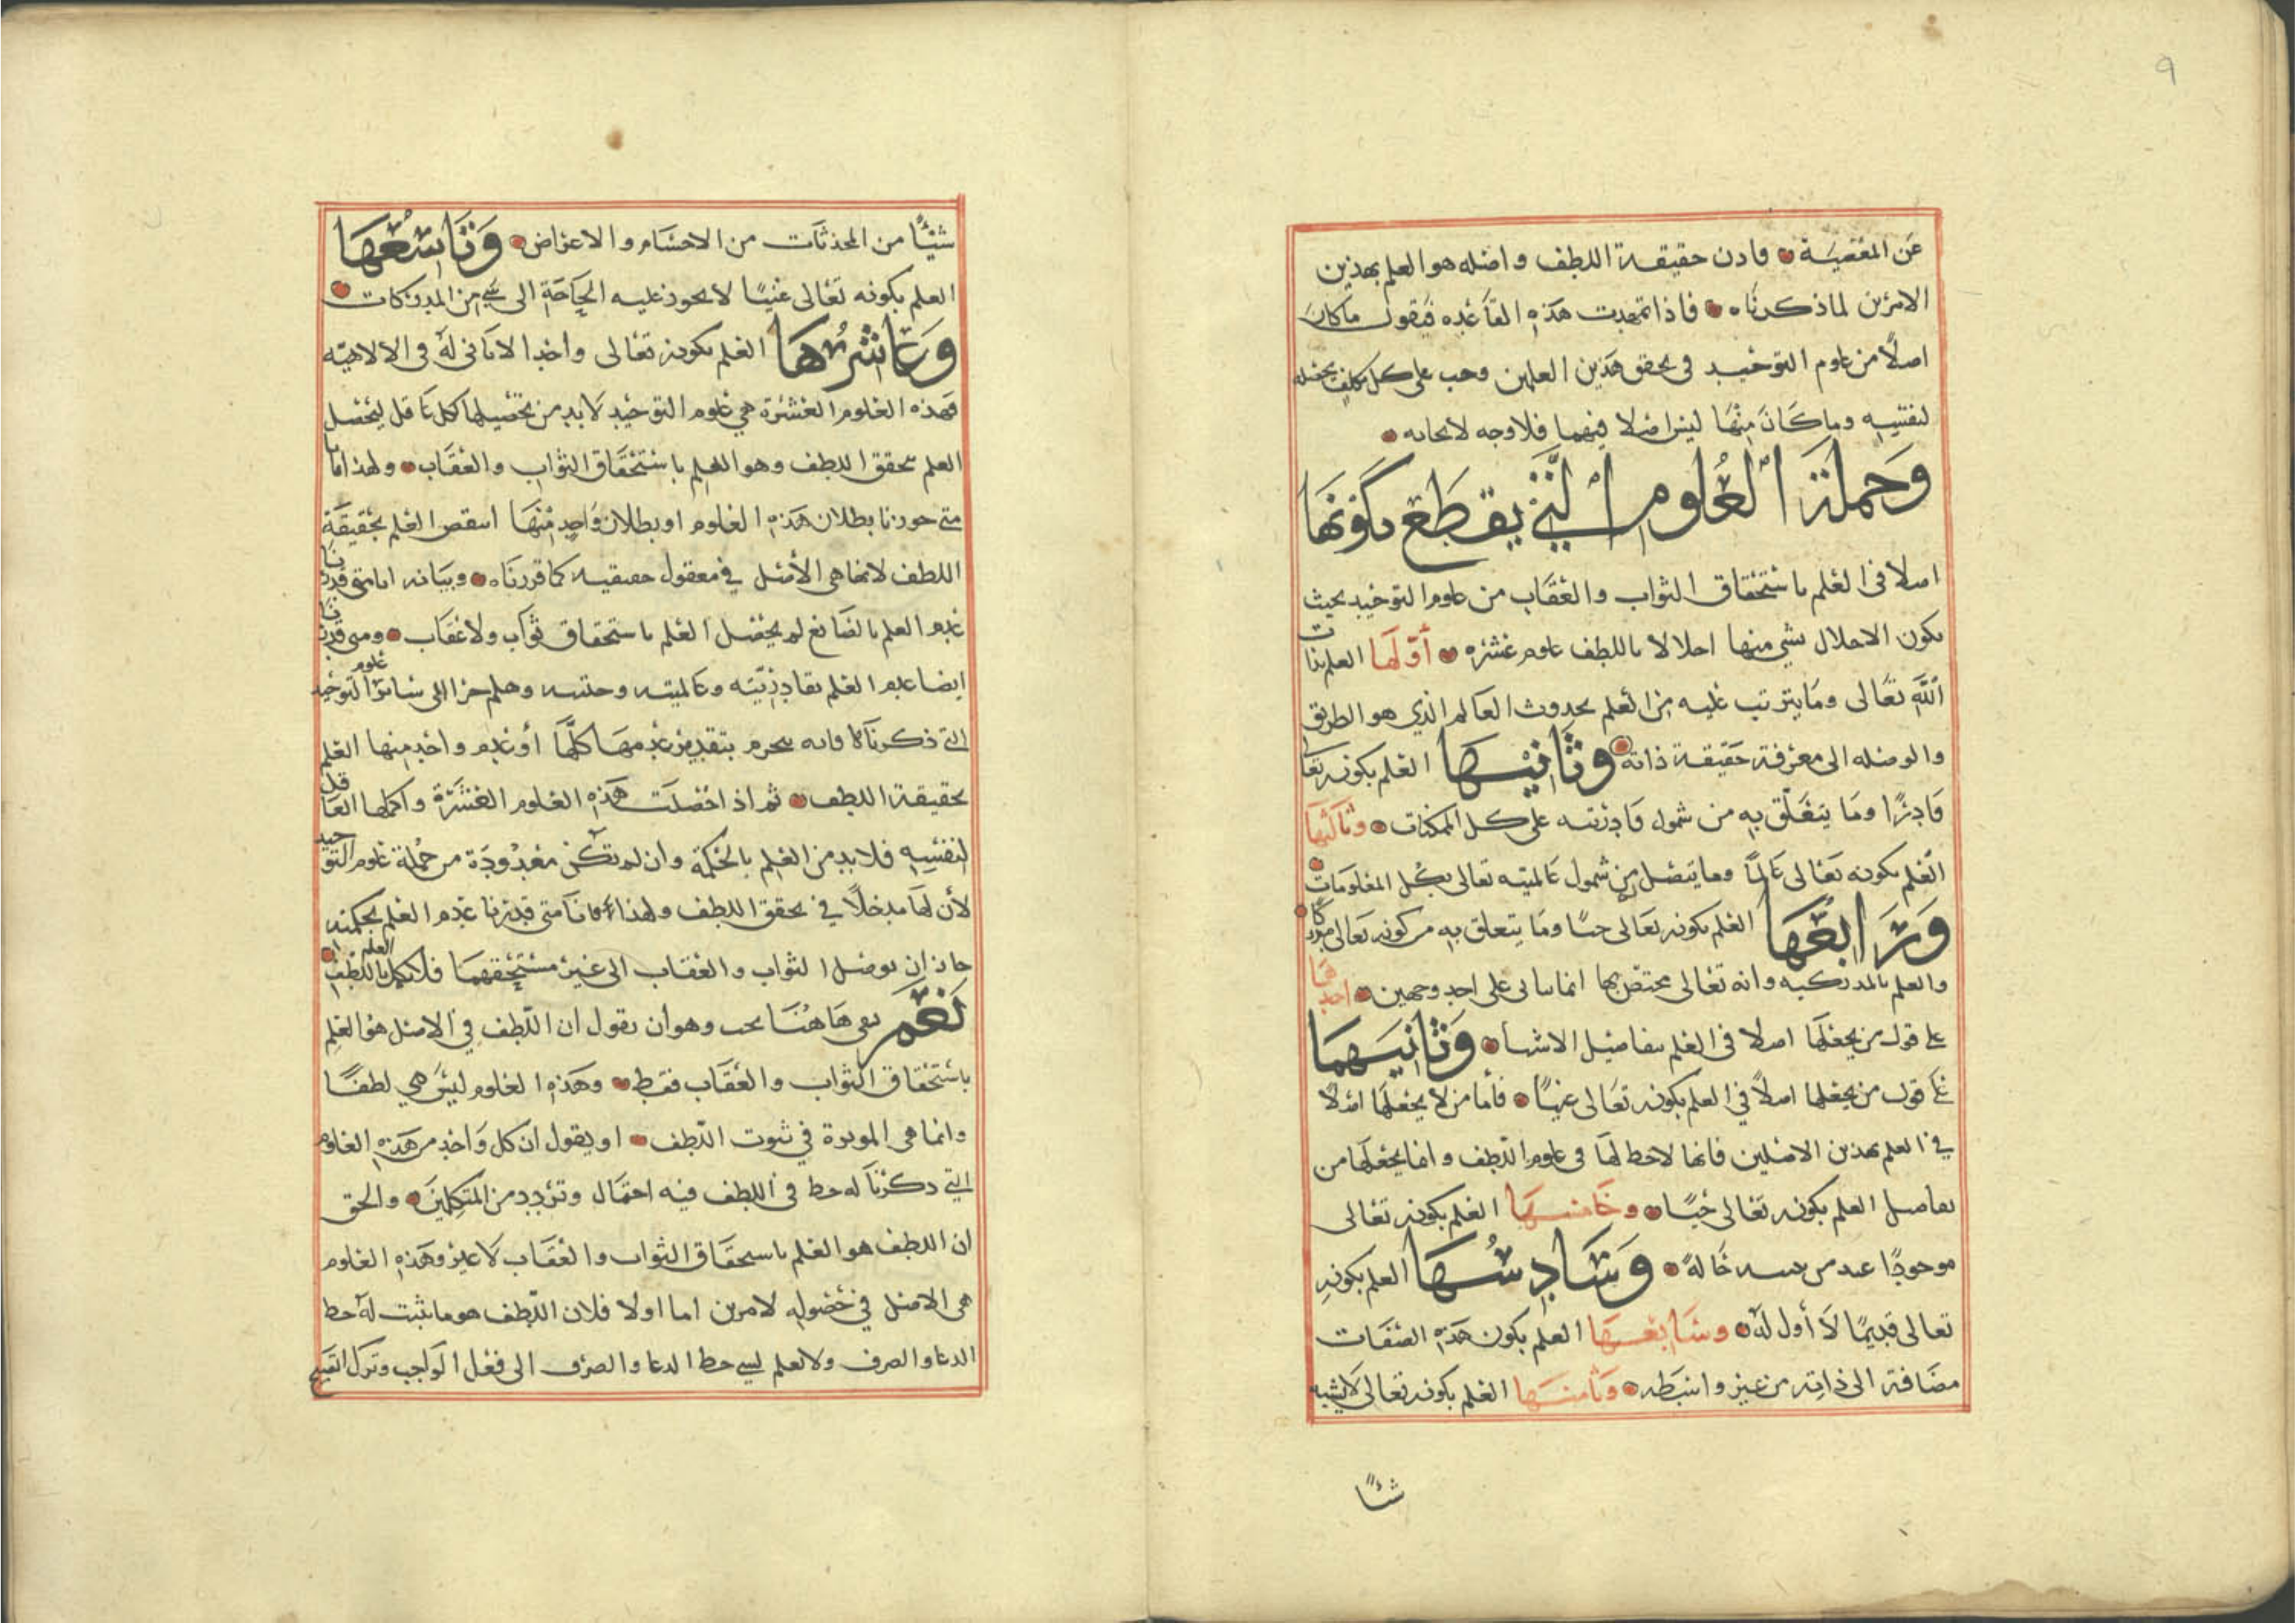 ٩
عن المعصية فاذن حقيقة اللطف واصله هو العلم بهذين
الامرين لما ذكرناه فاذا تمهدت هذه القاعده فنقول ما كان
اصلا من علوم التوحيد في تحقق هذين العلمين وجب على كل مكلف تحصله
لنفسه وما كان منها ليس اصلا فيهما فلا وجه لايجابه
وجملة العلوم التي يقطع بكونها
اصلا في العلم باستحقاق الثواب والعقاب من علوم التوحيد بحيث
يكون الاخلال بشي منها اخلالا باللطف علوم عشره أولها العلم بذات
الله تعالى وما يترتب عليه من العلم بحدوث العالم الذي هو الطريق
والوصله الى معرفة حقيقة ذاته وثانيها العلم بكونه تعا
قادرا وما يتعلق به من شمول قادريته على كل الممكنات وثالثها
العلم بكونه تعالى عالما وما يتصل من شمول عالميته تعالى بكل المعلومات
ورابعها العلم بكونه تعالى حيا وما يتعلق به من كونه تعالى مدركا
والعلم بالمدركيه وانه تعالى مختص بها انما ياتى على احد وجهين احدهما
على قول من يجعلها اصلا في العلم بتفاصيل الاشيا وثانيهما
على قول من يجعلها اصلا في العلم بكونه تعالى غنيا فأما من لا يجعلها اصلا
في العلم بهذين الاصلين فانها لا حظ لها في علوم اللطف وانما يجعلها من
تفاصيل العلم بكونه تعالى حيا وخامسها العلم بكونه تعالى
موجودا عند من يثبته حاله وسادسها العلم بكونه
تعالى قديما لا أول له وسابعها العلم بكون هذه الصفات
مضافة الى ذاته من غير واسطه وثامنها العلم بكونه تعالى لا يشبه
شيئا
شيئا من المحدثات من الاجسام والاعراض وتاسعها
العلم بكونه تعالى غنيا لا يجوز عليه الحاجة الى شي من المدركات
وعاشرها العلم بكونه تعالى واحدا لا ثانى له في الالاهيه
فهذه العلوم العشرة هي علوم التوحيد لا بد من تحصيلها لكل عاقل ليحصل
العلم بتحقق اللطف وهو العلم باستحقاق الثواب والعقاب ولهذا فانا
متى جوزنا بطلان هذه العلوم او بطلان واحد منها انتقص العلم بحقيقة
اللطف لانها هى الأصل في معقول حقيقيه كما قررناه وبيانه انا متى قدرنا
عدم العلم بالصانع لم يحصل العلم باستحقاق ثواب ولا عقاب ومتى قدرنا
ايضا عدم العلم بقادريته وعالميته وحييته وهلم جرا الى سائر علوم التوحيد
التي ذكرناها فانه ينخرم بتقدير عدمها كلها أو عدم واحد منها العلم
بحقيقة اللطف ثم اذا حصلت هذه العلوم العشرة واكملها العاقل
لنفسه فلا بد من العلم بالحكمة وان لم تكن معدودة من جملة علوم التوحيد
لأن لها مدخلا في تحقق اللطف ولهذا فانا متى قدرنا عدم العلم بحكمته
جاز ان يوصل الثواب والعقاب الى غير مستحقهما فلا يكمل العلم باللطف
نعم بقى هاهنا بحث وهو ان نقول ان اللطف في الاصل هو العلم
باستحقاق الثواب والعقاب فقط وهذه العلوم ليس هي لطفا
وانما هى الموثرة في ثبوت اللطف او يقول ان كل واحد من هذه العلوم
التي ذكرنا له حظ في اللطف فيه احتمال وتردد من المتكلمين والحق
ان اللطف هو العلم باستحقاق الثواب والعقاب لا غير وهذه العلوم
هى الاصل في حصوله لامرين اما اولا فلان اللطف هو ما يثبت له حظ
الدعا والصرف ولا لعلم لشي حظ الدعا والصرف الى فعل الواجب وترك القبيح